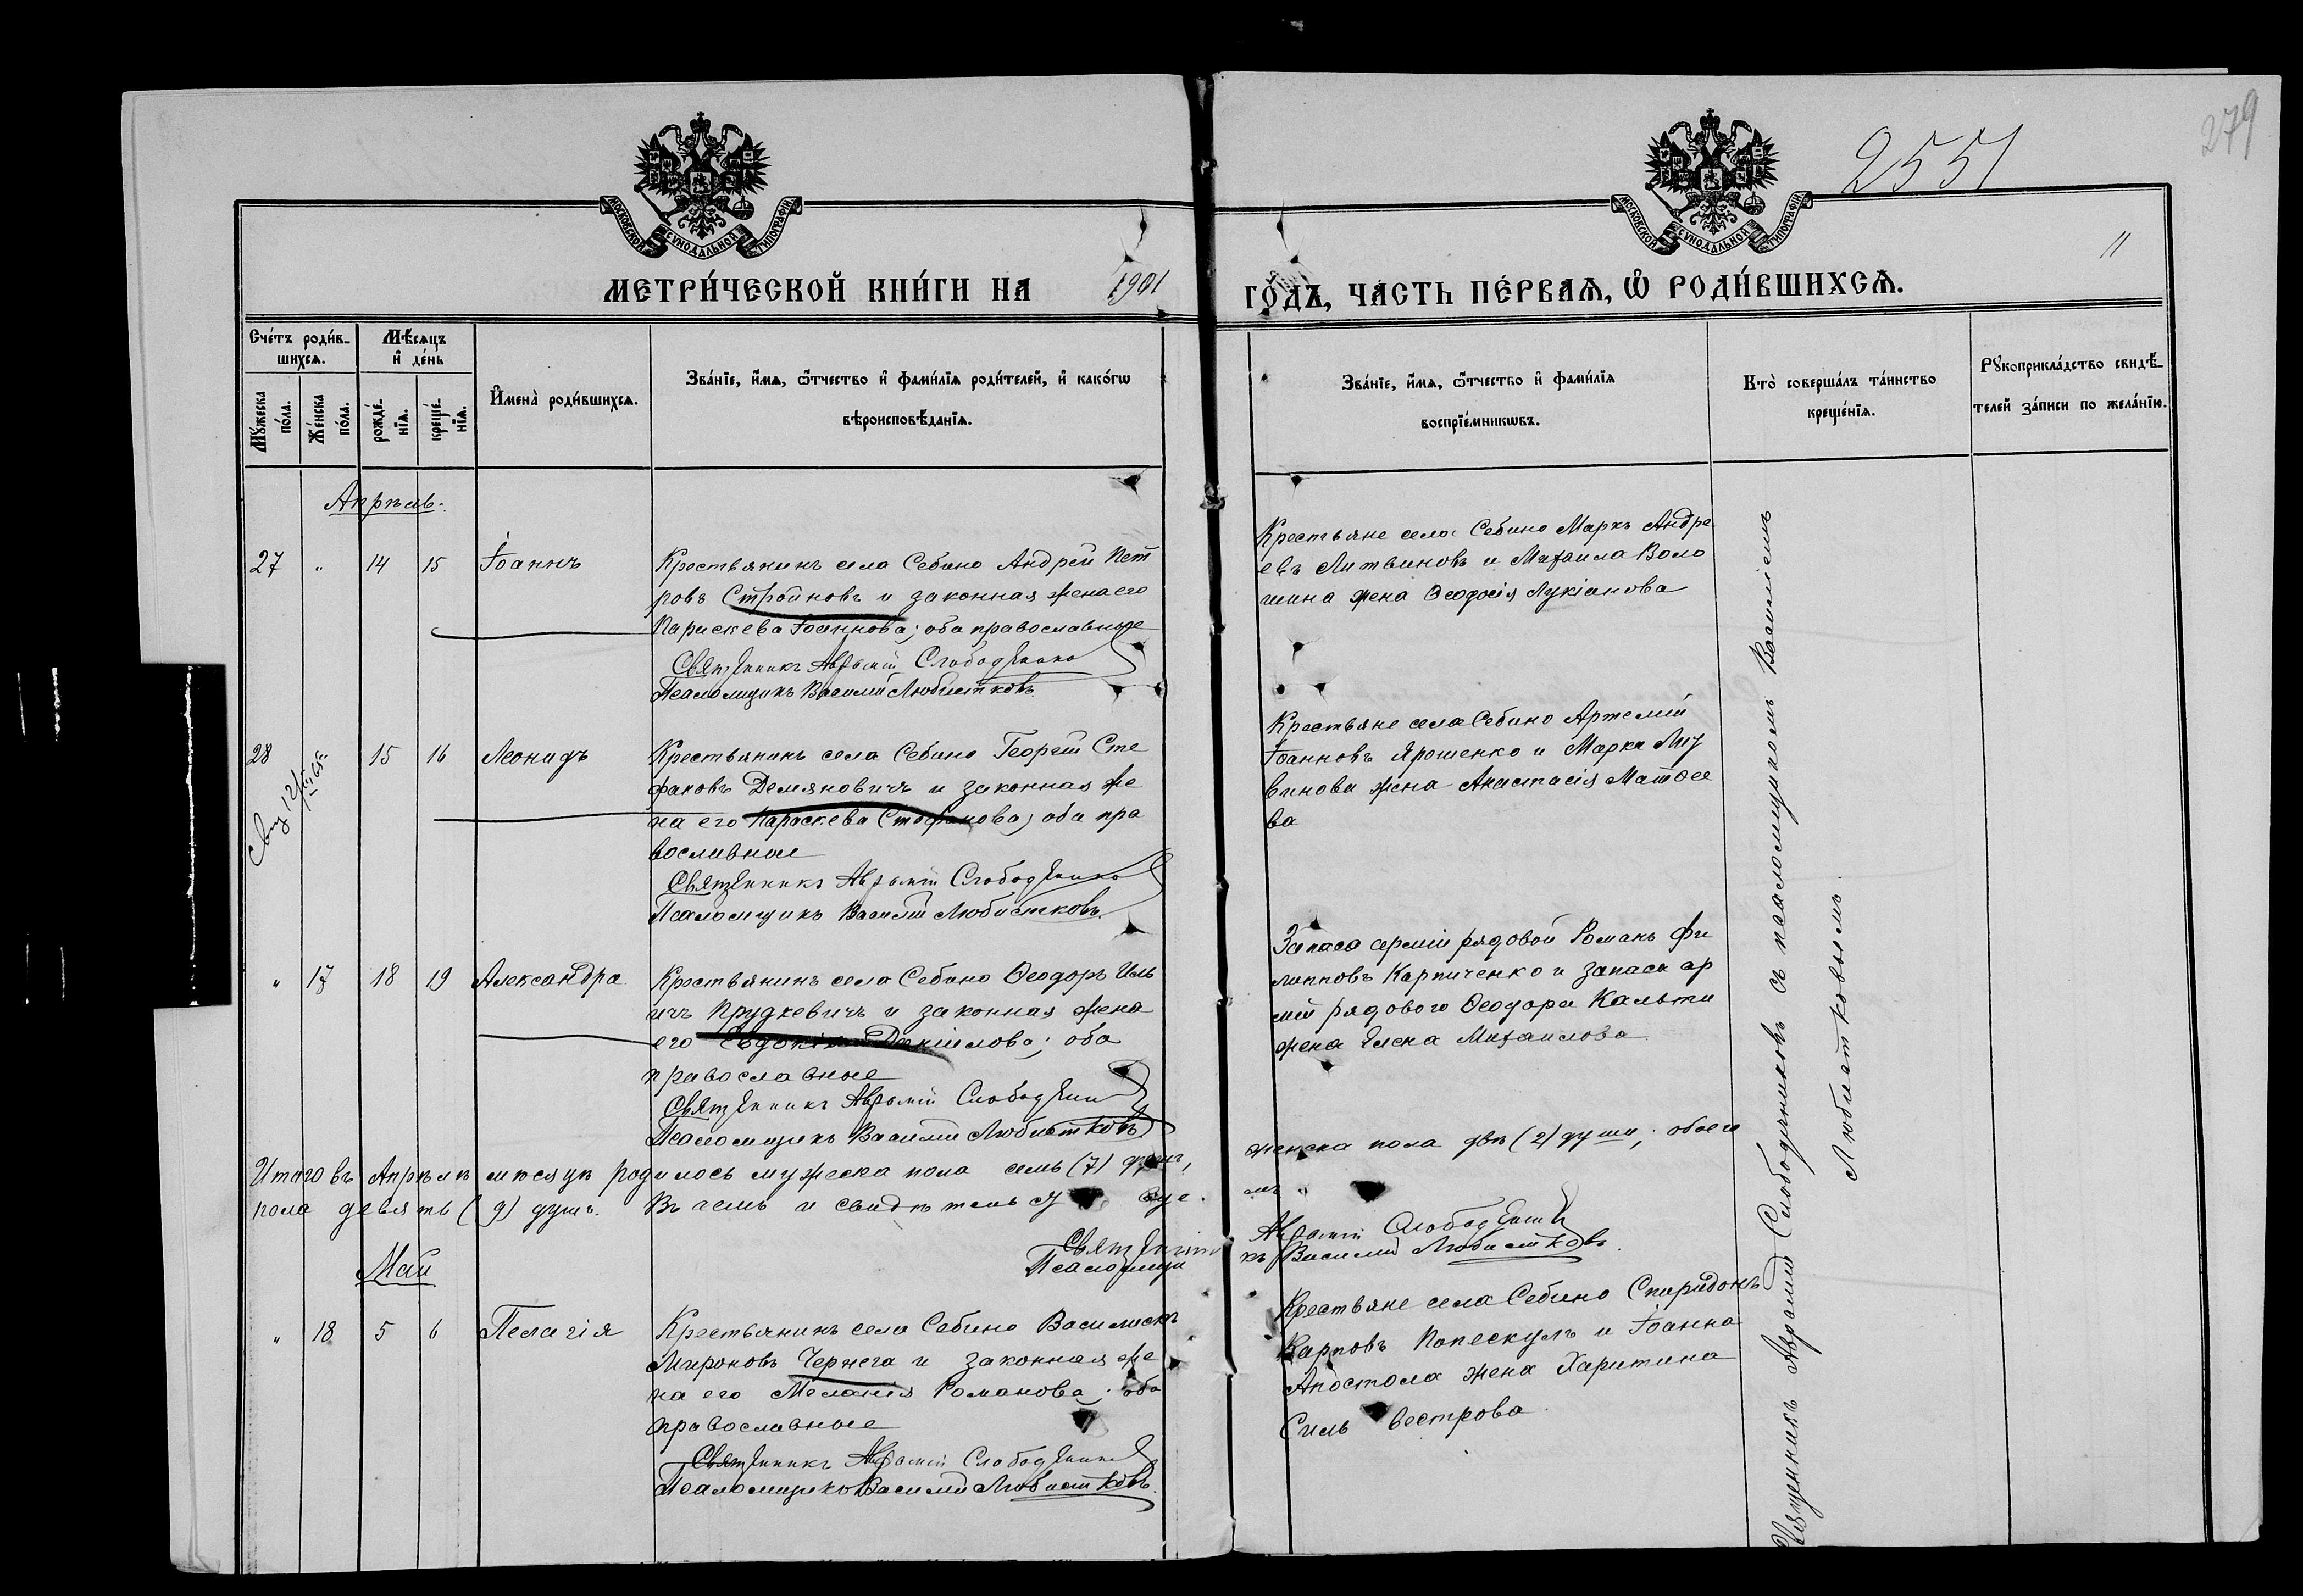 2551
279
11
МОСКОВСКОЙ СѴНОДАЛЬНОЙ ТИПОГРАФІИ
МОСКОВСКОЙ СѴНОДАЛЬНОЙ ТИПОГРАФІИ
МЕТРИ́ЧЕСКОЙ КНИ́ГИ НА 1901 ГО́ДЪ, ЧА́СТЬ ПЕ́РВАѦ, Ѽ РОДИ́ВШИХСѦ.
Сче́тъ роди́в-
шихсѧ.
Мѣ́сяцъ
и҆ де́нь
Мꙋ́жеска
по́ла.
Же́нска
по́ла.
рожде́-
нїѧ.
креще́-
нїѧ.
И҆мена̀ роди́вшихсѧ.
Зва́нїе, и҆́мѧ, ѻ҆́тчество и҆ фами́лїѧ роди́телей, и҆ како́гѡ
вѣроисповѣ́данїѧ.
Зва́нїе, и҆́мѧ, ѻ҆́тчество и҆ фами́лїѧ
воспрїе́мникѡвъ.
Кто̀ соверша́лъ та́инство
креще́нїѧ.
Рꙋкоприкла́дство свидѣ́-
телей за́писи по жела́нїю.
Апрѣль.
27 " 14 15 Іоаннъ
Крестьянинъ села Себино Андрей Пет
ровъ Стройновъ и законная жена его
Параскева Іоаннова; оба православные
Священникъ Аврамій Слободяник
Псаломщикъ Василій Любистковъ.
Крестьяне села Себино Маркъ Андре
евъ Литвиновъ и Михаила Воло
шина жена Ѳеодосія Лукіанова
28 15 16 Леонидъ
Крестьянинъ села Себино Георгій Сте
фановъ Демяновичъ и законная же
на его Параскева Стефанова; оба пра
вославные
Священникъ Аврамій Слободяник
Псаломщикъ Василій Любистковъ.
Крестьяне села Себино Артемій
Іоанновъ Ярошенко и Марка Лит
винова жена Анастасія Матѳее
ва
" 17 18 19 Александра
Крестьянинъ села Себино Ѳеодоръ Иль
ичъ Прудкевичъ и законная жена
его Евдокія Даніилова; оба
православные
Священникъ Аврамій Слободяник
Псаломщикъ Василій Любистковъ
Запаса арміи рядовой Романъ Фи
липповъ Карпиченко и запаса ар
міи рядового Ѳеодора Кальти
жена Елена Михаилова
Итого въ Апрѣлѣ мѣсяцѣ родилось мужеска пола семь (7) душъ, женска пола двѣ (2) души, обоего
пола девять (9) душъ. Въ чемъ и свидѣтельст
Священникъ Аврамій Слободяник
Псаломщикъ Василій Любистковъ.
Май
" 18 5 6 Пелагія
Крестьянинъ села Себино Василискъ
Мироновъ Чернега и законная же
на его Меланія Романова; оба
православные
Священникъ Аврамій Слободяник
Псаломщикъ Василій Любистковъ.
Крестьяне села Себино Спиридонъ
Карповъ Попескулъ и Іоанна
Апостола жена Харитина
Сильвестрова
Священникъ Аврамій Слободяниковъ съ псаломщикомъ Василіемъ
Любистковымъ.